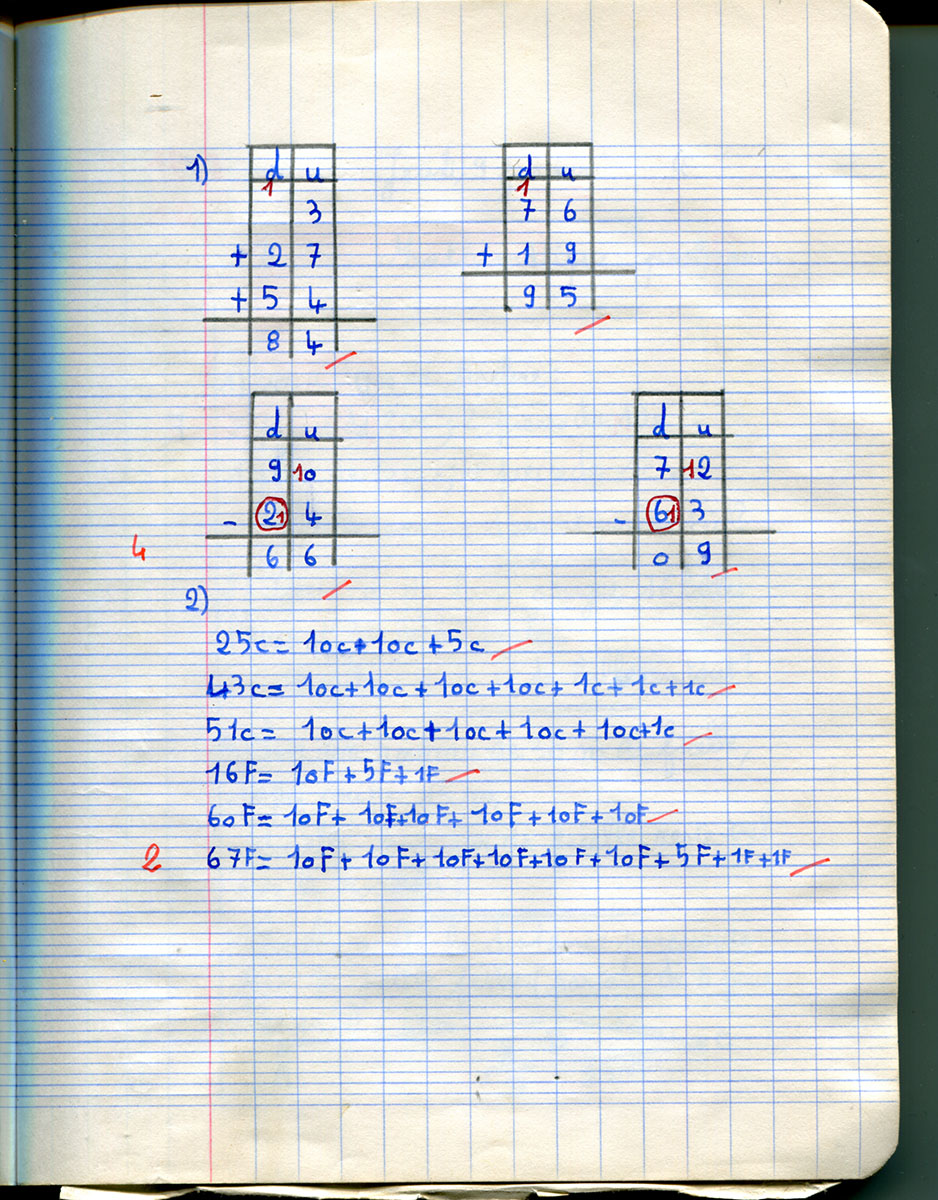 1) d u d u
1 1
3 7 6
+ 2 7 + 1 9
+ 5 4 9 5
8 4
d u d u
9 10 7 12
- 21 4 - 61 3
4 6 6 0 9
2)
25c = 10c + 10c + 5c
43c = 10c + 10c + 10c + 10c + 1c + 1c + 1c
51c = 10c + 10c + 10c + 10c + 10c + 1c
16F = 10F + 5F + 1F
60F = 10F + 10F + 10F + 10F + 10F + 10F
2 67F = 10F + 10F + 10F + 10F + 10F + 10F + 5F + 1F + 1F